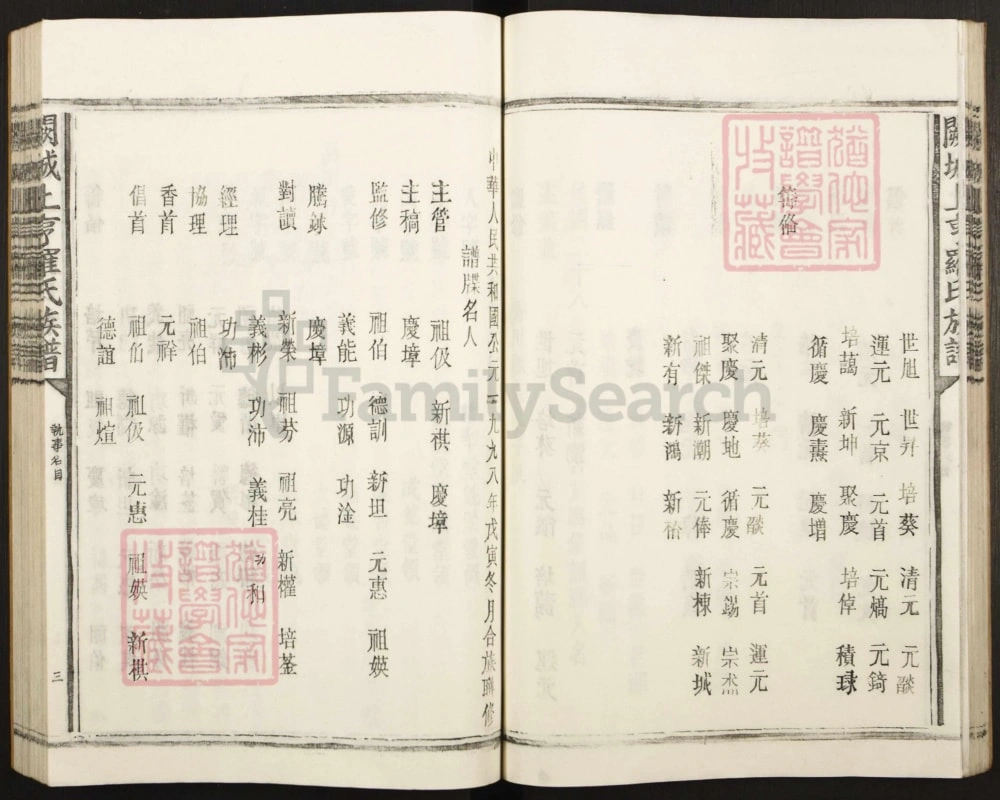 闕城上亨羅氏族譜
世旭 世昇 培葵 清元 元燚
運元 元京 元首 元熇 元錡
培藹 新坤 聚慶 培倬 積球
循慶 慶燾 慶增
清元 培葵 元燚 元首 運元
聚慶 慶地 循慶 宗錫 宗
祖傑 新潮 元俸 新棟 新城
新有 新鴻 新
中華人民共和國公元一九九八年戊寅冬月合族聯修
譜牒名人
主管 祖伋 新祺 慶墇
主稿 慶墇
監修 祖伯 德訓 新坦 元惠 祖媖
義能 功源 功淦
謄錄 慶墇
對讀 新榮 祖芬 祖亮 新權 培荃
義彬 功沛 義桂 功和
經理 功沛
協理 祖伯
香首 元祥
倡首 祖伯 祖伋 元惠 祖媖 新棋
德誼 祖煊
闕城上亨羅氏族譜
執事名目
三
FamilySearch